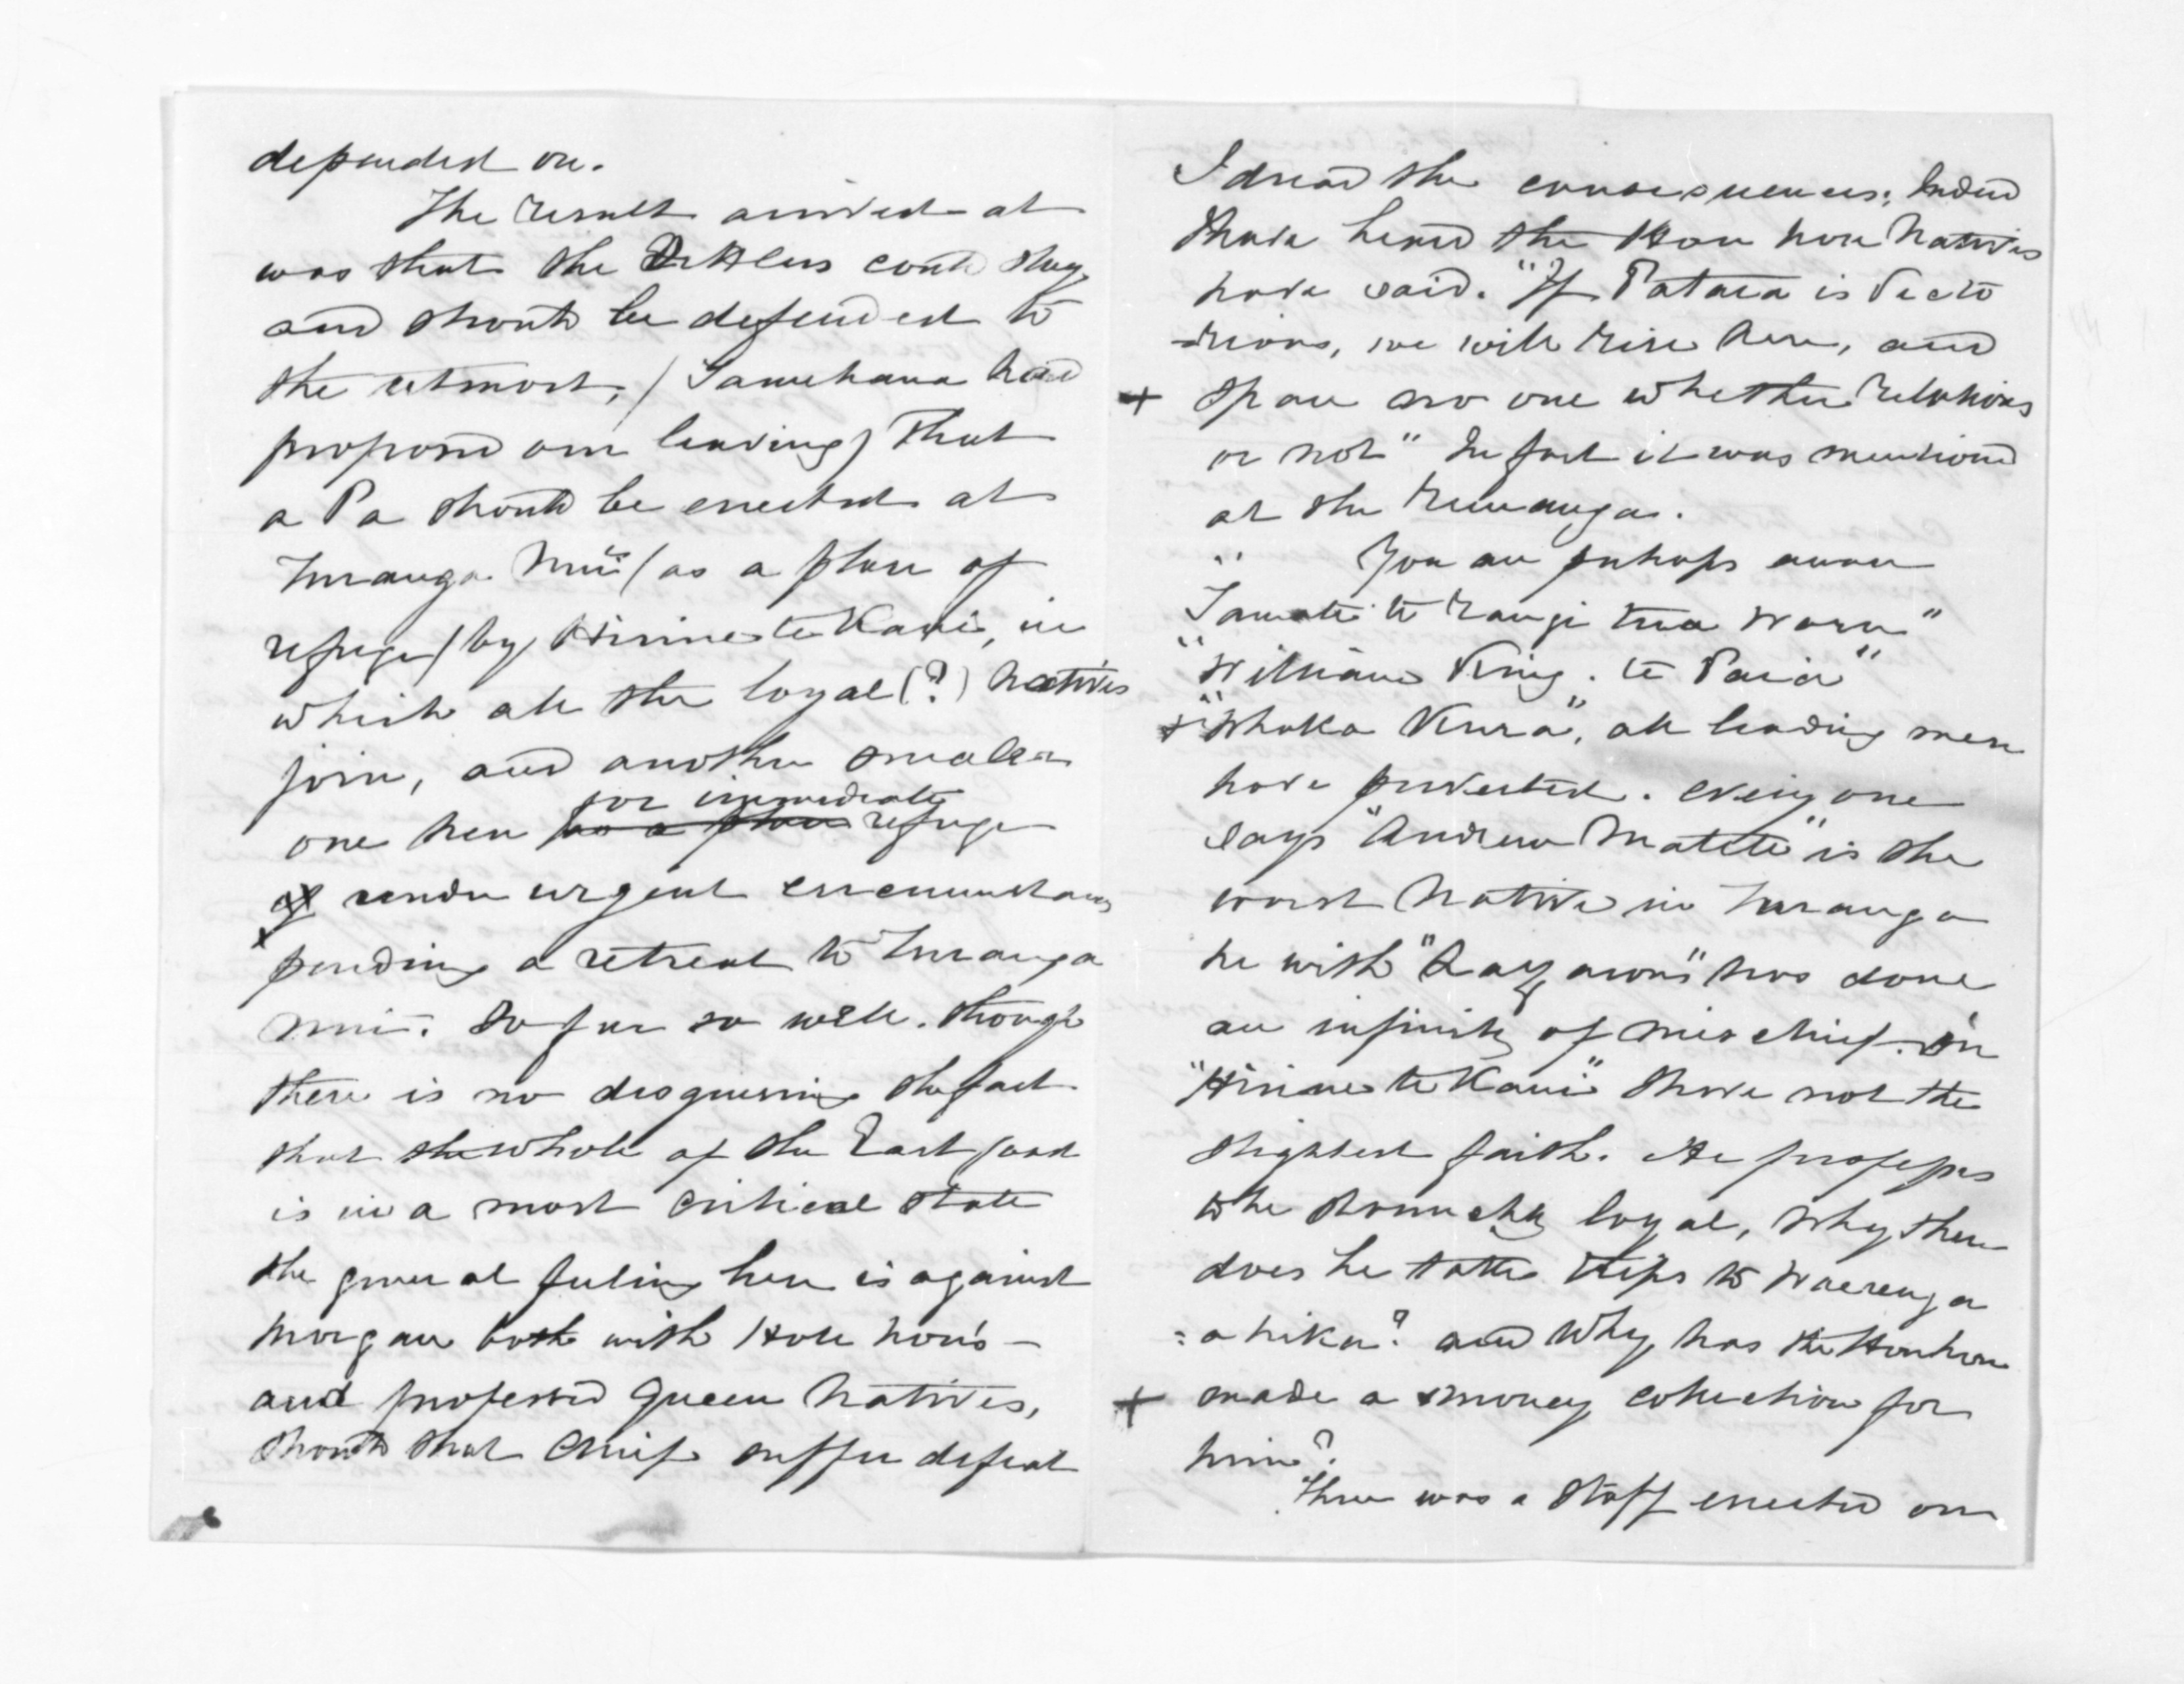 depended on.
The result arrived at
was that the Settlers could stay
and should be defended to
the utmost, (Tamehana had
proposed our leaving) That
a Pa should be erected at
Turanga Nui (as a place of
refuge) by Hirine te Kani, in
which all the loyal (?) natives
join, and another smaller
one here for immediate refuge
under urgent circumstances
pending a retreat to Turanga
nui. So far so well. though
there is no disguising the fact
that the whole of the East Coast
is in a most critical state
the general feeling here is against
Morgan both with Hau hau's -
and professed Queen Natives,
should that Chief suffer defeat
I dread the consequences; Indeed
I have heard the Hau hau Natives
have said. "If Patara is Victo
-rious, we will rise here, and
+ spare no one whether relations
or not" In fact it was mentioned
at the Runanga.
You are perhaps aware
"Tamati te Rangi tua Waru"
"William King. te Paia"
+ "Whaka Kura", all leading men
have perverted. everyone
says "Andrew Matete" is the
worst Native in Turanga
he with "Lazarus" has done
an infinity of mischief. in
"Hirine te Kani" I have not the
slightest faith. He professes
to be staunchly loyal, why then
does he take trips to Waerenga
=a hika? and why has the Hauhau
+ made a money collection for
him?
There was a Staff erected on